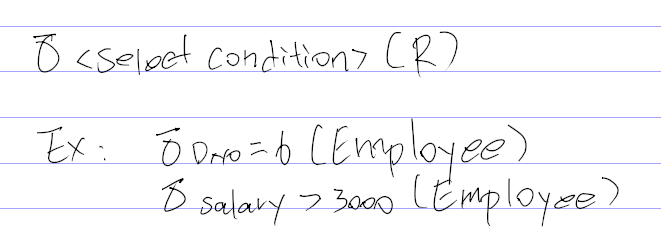 σ <select condition> (R)
Ex: σ DNO = 6 (Employee)
σ salary > 3000 (Employee)